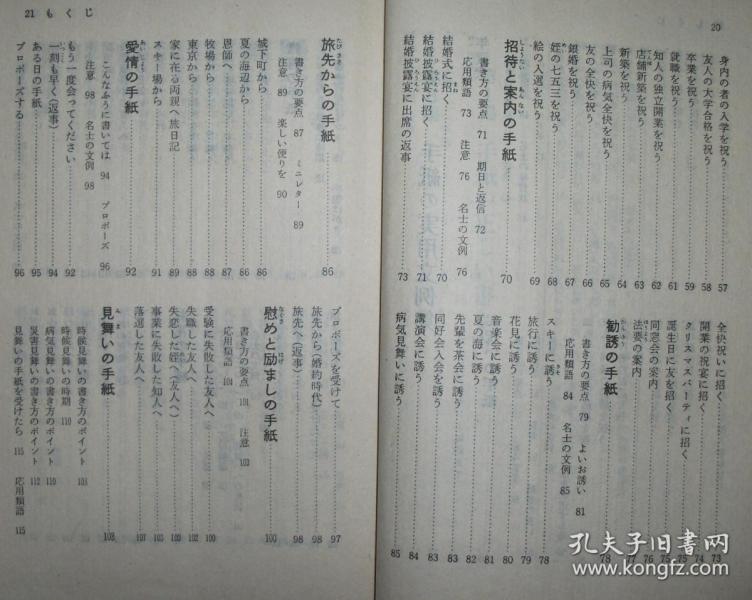 20
身内の者の入学を祝う……57
友人の大学合格を祝う……58
卒業を祝う……59
就職を祝う……61
知人の独立開業を祝う……62
店舗新築を祝う……63
新築を祝う……64
上司の病気全快を祝う……65
友の全快を祝う……66
銀婚を祝う……67
姪の七五三を祝う……68
絵の入選を祝う……69
招待と案内の手紙……70
書き方の要点 71 期日と返信 72
応用類語 73 注意 76 名士の文例 76
結婚式に招く……70
結婚披露宴に招く……71
結婚披露宴に出席の返事……73
全快祝いに招く……73
開業の祝宴に招く……74
クリスマスパーティに招く……75
誕生日に友を招く……75
同窓会の案内……76
法要の案内……77
勧誘の手紙……78
書き方の要点 79 よいお誘い 81
応用類語 84 名士の文例 85
スキーに誘う……78
旅行に誘う……79
花見に誘う……80
音楽会に誘う……81
夏の海に誘う……82
先輩を茶会に誘う……83
同好会入会を誘う……83
講演会に誘う……84
病気見舞いに誘う……85
21 もくじ
旅先からの手紙……86
書き方の要点 87 ミニレター 89
注意 89 楽しい便りを 90
城下町から……86
夏の海辺から……86
恩師へ……87
東京から……88
牧場から……88
家に在る両親へ旅日記……89
スキー場から……91
愛情の手紙……92
こんなふうに書いては 94 プロポーズ 96
注意 98 名士の文例 98
もう一度会ってください……92
一刻も早く(返事)……94
ある日の手紙……95
プロポーズする……96
プロポーズを受けて……97
旅先から(婚約時代)……98
旅先へ(返事)……98
慰めと励ましの手紙……100
書き方の要点 101 注意 103
応用類語 104
受験に失敗した友人へ……100
失職した友人へ……100
失恋した姪へ(友人へ)……102
事業に失敗した知人へ……103
落選した友人へ……107
見舞いの手紙……108
時候見舞いの書き方のポイント 108
時候見舞いの時期 110
病気見舞いの書き方のポイント 110
災害見舞いの書き方のポイント 112
見舞いの手紙を受けたら 115 応用類語 115
孔夫子旧书网
www.kongfz.com